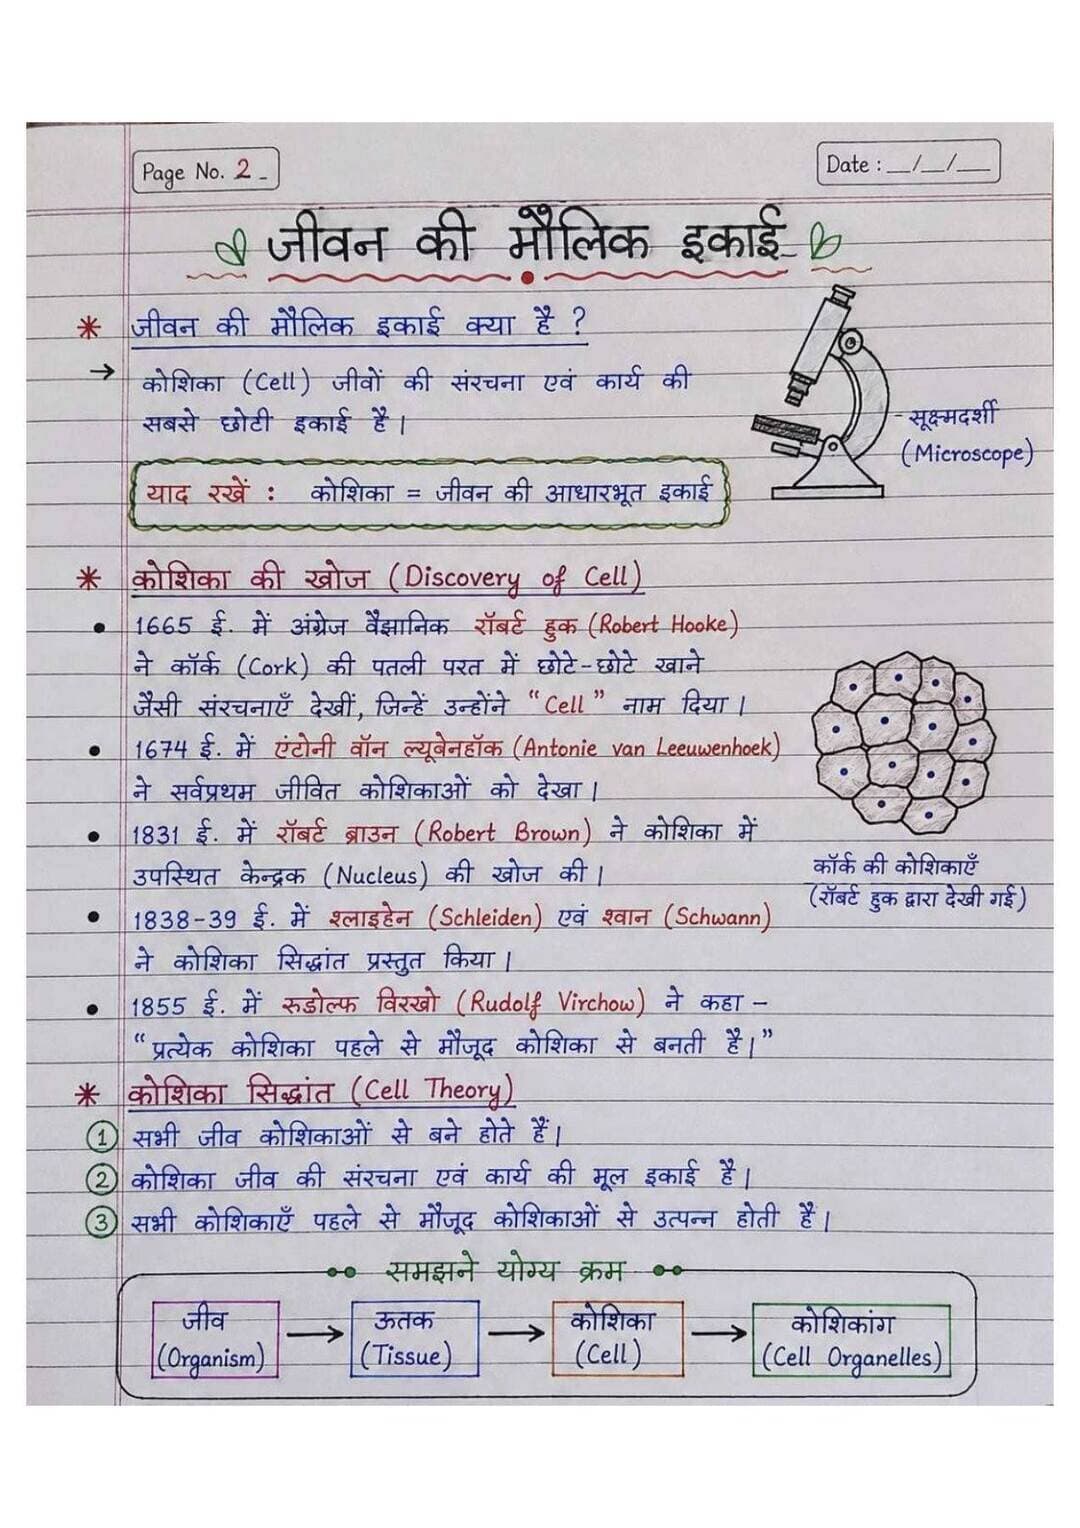 Page No. 2
Date : __/__/__
जीवन की मौलिक इकाई
* जीवन की मौलिक इकाई क्या है ?
→ कोशिका (Cell) जीवों की संरचना एवं कार्य की
सबसे छोटी इकाई है।
सूक्ष्मदर्शी
(Microscope)
याद रखें : कोशिका = जीवन की आधारभूत इकाई
* कोशिका की खोज (Discovery of Cell)
• 1665 ई. में अंग्रेज वैज्ञानिक रॉबर्ट हुक (Robert Hooke)
ने कॉर्क (Cork) की पतली परत में छोटे-छोटे खाने
जैसी संरचनाएँ देखीं, जिन्हें उन्होंने "Cell" नाम दिया।
• 1674 ई. में एंटोनी वॉन ल्यूबेनहॉक (Antonie van Leeuwenhoek)
ने सर्वप्रथम जीवित कोशिकाओं को देखा।
• 1831 ई. में रॉबर्ट ब्राउन (Robert Brown) ने कोशिका में
उपस्थित केन्द्रक (Nucleus) की खोज की।
कॉर्क की कोशिकाएँ
(रॉबर्ट हुक द्वारा देखी गई)
• 1838-39 ई. में श्लाइहेन (Schleiden) एवं श्वान (Schwann)
ने कोशिका सिद्धांत प्रस्तुत किया।
• 1855 ई. में रुडोल्फ विरखो (Rudolf Virchow) ने कहा –
"प्रत्येक कोशिका पहले से मौजूद कोशिका से बनती है।"
* कोशिका सिद्धांत (Cell Theory)
① सभी जीव कोशिकाओं से बने होते हैं।
② कोशिका जीव की संरचना एवं कार्य की मूल इकाई है।
③ सभी कोशिकाएँ पहले से मौजूद कोशिकाओं से उत्पन्न होती हैं।
समझने योग्य क्रम
जीव → ऊतक → कोशिका → कोशिकांग
(Organism) (Tissue) (Cell) (Cell Organelles)